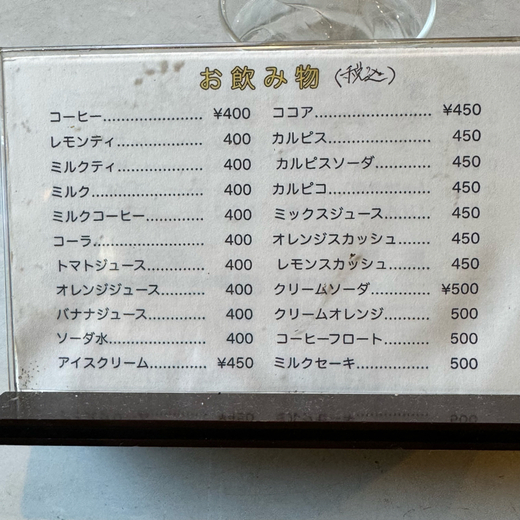 お飲み物 (税込)
コーヒー...................... ¥400
レモンティ.................... 400
ミルクティ.................... 400
ミルク........................ 400
ミルクコーヒー............... 400
コーラ........................ 400
トマトジュース............. 400
オレンジジュース.......... 400
バナナジュース............. 400
ソーダ水..................... 400
アイスクリーム............. ¥450
ココア........................ ¥450
カルピス..................... 450
カルピスソーダ............. 450
カルピコ..................... 450
ミックスジュース.......... 450
オレンジスカッシュ....... 450
レモンスカッシュ.......... 450
クリームソーダ............. ¥500
クリームオレンジ.......... 500
コーヒーフロート.......... 500
ミルクセーキ............... 500